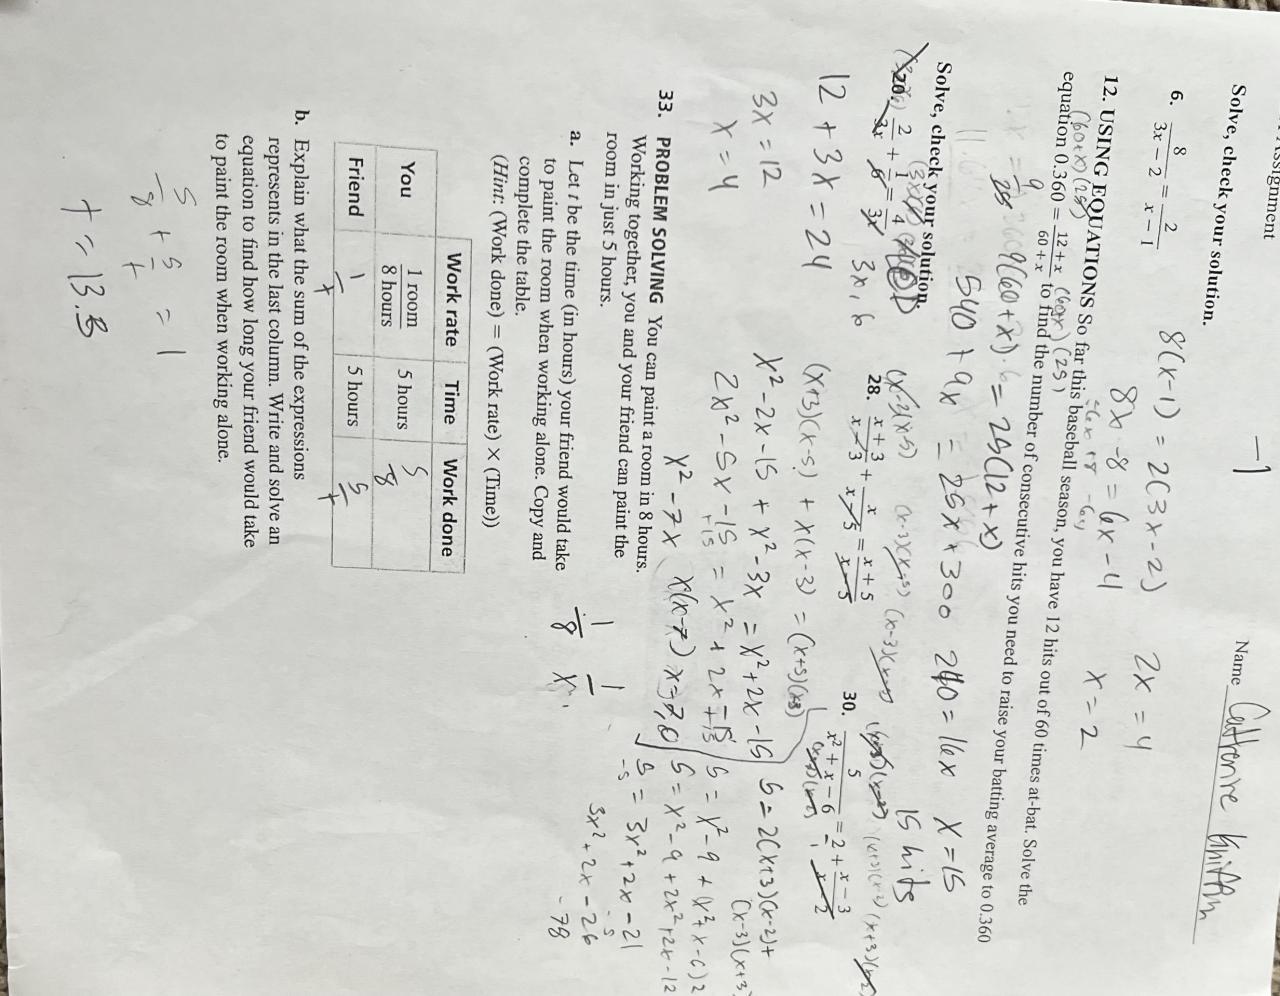 Assignment
-1
Name
Solve, check your solution.
6. 8/(3x − 2) = 2/(x − 1)
8(x-1) = 2(3x-2)
8x -8 = 6x -4
2x = 4
x = 2
12. USING EQUATIONS So far this baseball season, you have 12 hits out of 60 times at-bat. Solve the
equation 0.360 = (12 + x)/(60 + x) to find the number of consecutive hits you need to raise your batting average to 0.360
(60+x)(25)
(60+x)(25)
9/25
9(60+x) = 25(12+x)
540 + 9x = 25x + 300
240 = 16x
x = 15
15 hits
Solve, check your solution.
20. 2/3x + 1/6 = 4/3x
3x, 6
12 + 3x = 24
3x = 12
x = 4
28. (x + 3)/(x − 3) + x/(x − 5) = (x + 5)/(x − 5)
(x-3)(x-5)
(x+3)(x-5) + x(x-3) = (x+5)(x-3)
x² -2x -15 + x² -3x = x² +2x -15
2x² -5x -15 = x² + 2x -15
+15
x² - 7x
x(x-7)
x=7,0
30. 5/(x² + x − 6) = 2 + (x − 3)/(x − 2)
5 = 2(x+3)(x-2) +
(x-3)(x+3)
5 = x² - 9 + (x² + x - 6)2
5 = x² - 9 + 2x² + 2x - 12
5 = 3x² + 2x - 21
-5 -5
3x² + 2x - 26
-78
33. PROBLEM SOLVING You can paint a room in 8 hours.
Working together, you and your friend can paint the
room in just 5 hours.
a. Let t be the time (in hours) your friend would take
to paint the room when working alone. Copy and
complete the table.
(Hint: (Work done) = (Work rate) × (Time))
1/8 1/x
Work rate Time Work done
You 1 room/8 hours 5 hours 5/8
Friend 1/t 5 hours 5/t
b. Explain what the sum of the expressions
represents in the last column. Write and solve an
equation to find how long your friend would take
to paint the room when working alone.
5/8 + 5/t = 1
t = 13.3